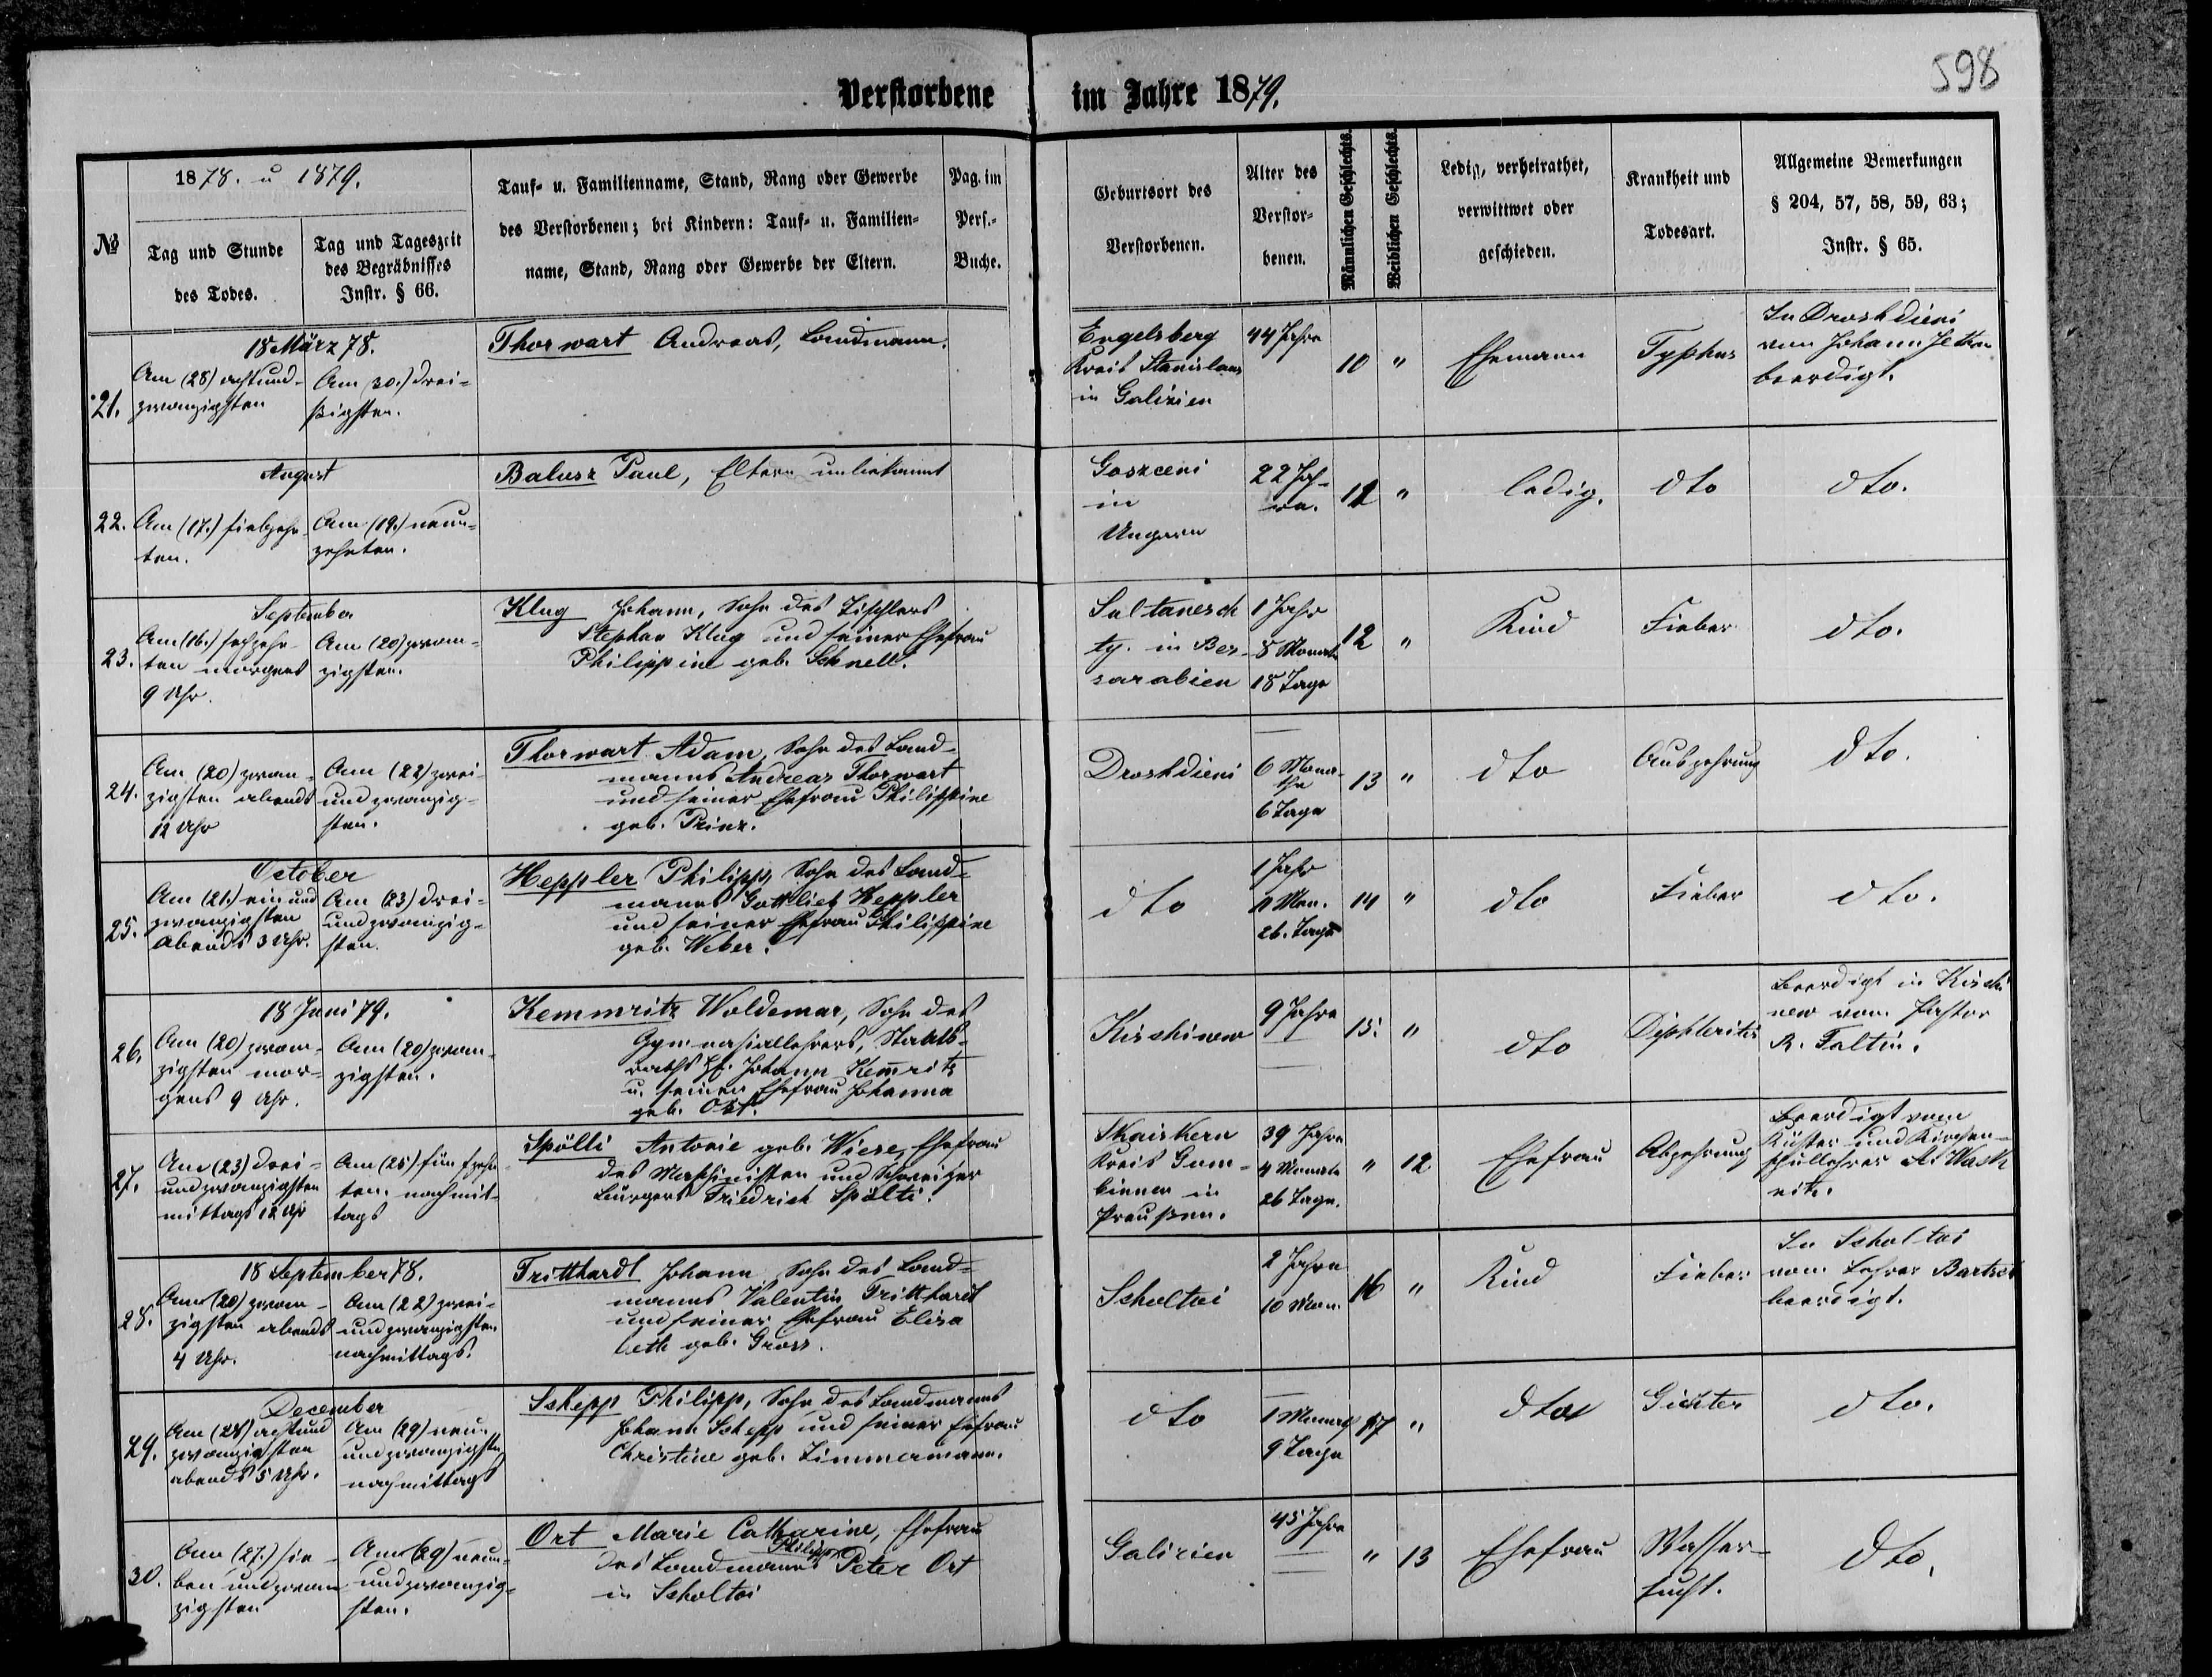 598
Verstorbene im Jahre 1879.
№
1878. u 1879.
Tag und Stunde
des Todes.
Tag und Tageszeit
des Begräbnisses
Instr. § 66.
Tauf- u. Familienname, Stand, Rang oder Gewerbe
des Verstorbenen; bei Kindern: Tauf- u. Familien-
name, Stand, Rang oder Gewerbe der Eltern.
Pag. im
Pers.-
Buche.
Geburtsort des
Verstorbenen.
Alter des
Verstor-
benen.
Männlichen Geschlechts.
Weiblichen Geschlechts.
Ledig, verheirathet,
verwittwet oder
geschieden.
Krankheit und
Todesart.
Allgemeine Bemerkungen
§ 204, 57, 58, 59, 63;
Instr. § 65.
21.
18 März 78.
Am (28) achtund-
zwanzigsten
Am 30.) drei-
ßigsten.
Thorwart Andreas, Landmann.
Engelsberg
Kreis Stanislaus
in Galizien
44 Jahre
10
"
Ehemann
Typhus
In Droshdieni
von Johann
beerdigt.
22.
August
Am (17.) siebzehn-
ten.
Am (19.) neun-
zehnten.
Balusz Paul, Eltern unbekannt
Goszceni
in
Ungarn
22 Jah-
re.
11
"
ledig.
dto
dto.
23.
September
Am (16.) sechzehn-
ten morgens
9 Uhr.
Am (20) zwan-
zigsten.
Klug Johann, Sohn des Tischlers
Stephan Klug und seiner Ehefrau
Philippine geb. Schnell.
Saltanesch
ty. in Bes-
sarabien
1 Jahr
8 Monate
18 Tage
12
"
Kind
Fieber
dto.
24.
Am (20) zwan-
zigsten abends
12 Uhr
Am (22) zwei-
undzwanzig-
sten.
Thorwart Adam, Sohn des Land-
manns Andreas Thorwart
und seiner Ehefrau Philippine
geb. Prinz.
Droshdieni
6 Mona-
the
6 Tage
13
"
dto
Auszehrung
dto.
25.
October
Am (21.) ein und
zwanzigsten
abends 3 Uhr.
Am (23) drei-
undzwanzig-
sten.
Heppler Philipp, Sohn des Land-
manns Gottlieb Heppler
und seiner Ehefrau Philippine
geb. Weber.
dto
1 Jahr
11 Mon.
26. Tage
14
"
dto
Fieber
dto.
26.
18 Juni 79.
Am (20) zwan-
zigsten mor-
gens 9 Uhr.
Am (20) zwan-
zigsten.
Kemmritz Woldemar, Sohn des
Gymnasiallehrers, Staats-
raths H. Johann Kem̄ritz
u. seiner Ehefrau Johanna
geb. Ost.
Kischinew
9 Jahre
15.
"
dto
Diphteritis
Beerdigt in Kischi
new von Pastor
R. Faltin.
27.
Am (23) drei-
undzwanzigsten
mittags 12 Uhr
Am (25) fünfzehn
ten. nachmit-
tags
Spölti Antonie geb. Wiese, Ehefrau
des Maschinisten und Schweizer
Bürgers Friedrich Spölti.
Skaiskern
Kreis Gum-
binnen in
Preußen.
39 Jahre
4 Monate
26 Tage.
"
12
Ehefrau
Abzehrung
Beerdigt vom
Küster und Kirchen-
schullehrer A. Wask
nitz.
28.
18 September 78.
Am (20) zwan-
zigsten abends
4 Uhr.
Am (22) zwei-
undzwanzigsten
nachmittags.
Tritthardt Johann Sohn des Land-
manns Valentin Tritthardt
und seiner Ehefrau Elisa
beth geb. Gross.
Scholtoi
2 Jahre
10 Mon.
16
"
Kind
Fieber
In Scholtoi
vom Lehrer Bartsch
beerdigt.
29.
December
Am (28) achtund
zwanzigsten
abends 5 Uhr.
Am (29) neun-
undzwanzigsten
nachmittags
Schepp Philipp, Sohn des Landmanns
Johann Schepp und seiner Ehefrau
Christine geb. Zimmermann.
dto
1 Monat
9 Tage
17
"
dto
Gichter
dto.
30.
Am (27.) sie-
ben undzwan
zigsten
Am (29) neun-
undzwanzig-
sten.
Ort Marie Catharine, Ehefrau
des Landmanns Philipp Peter Ort
in Scholtoi
Galizien
45 Jahre
"
13
Ehefrau
Wasser-
sucht.
dto.